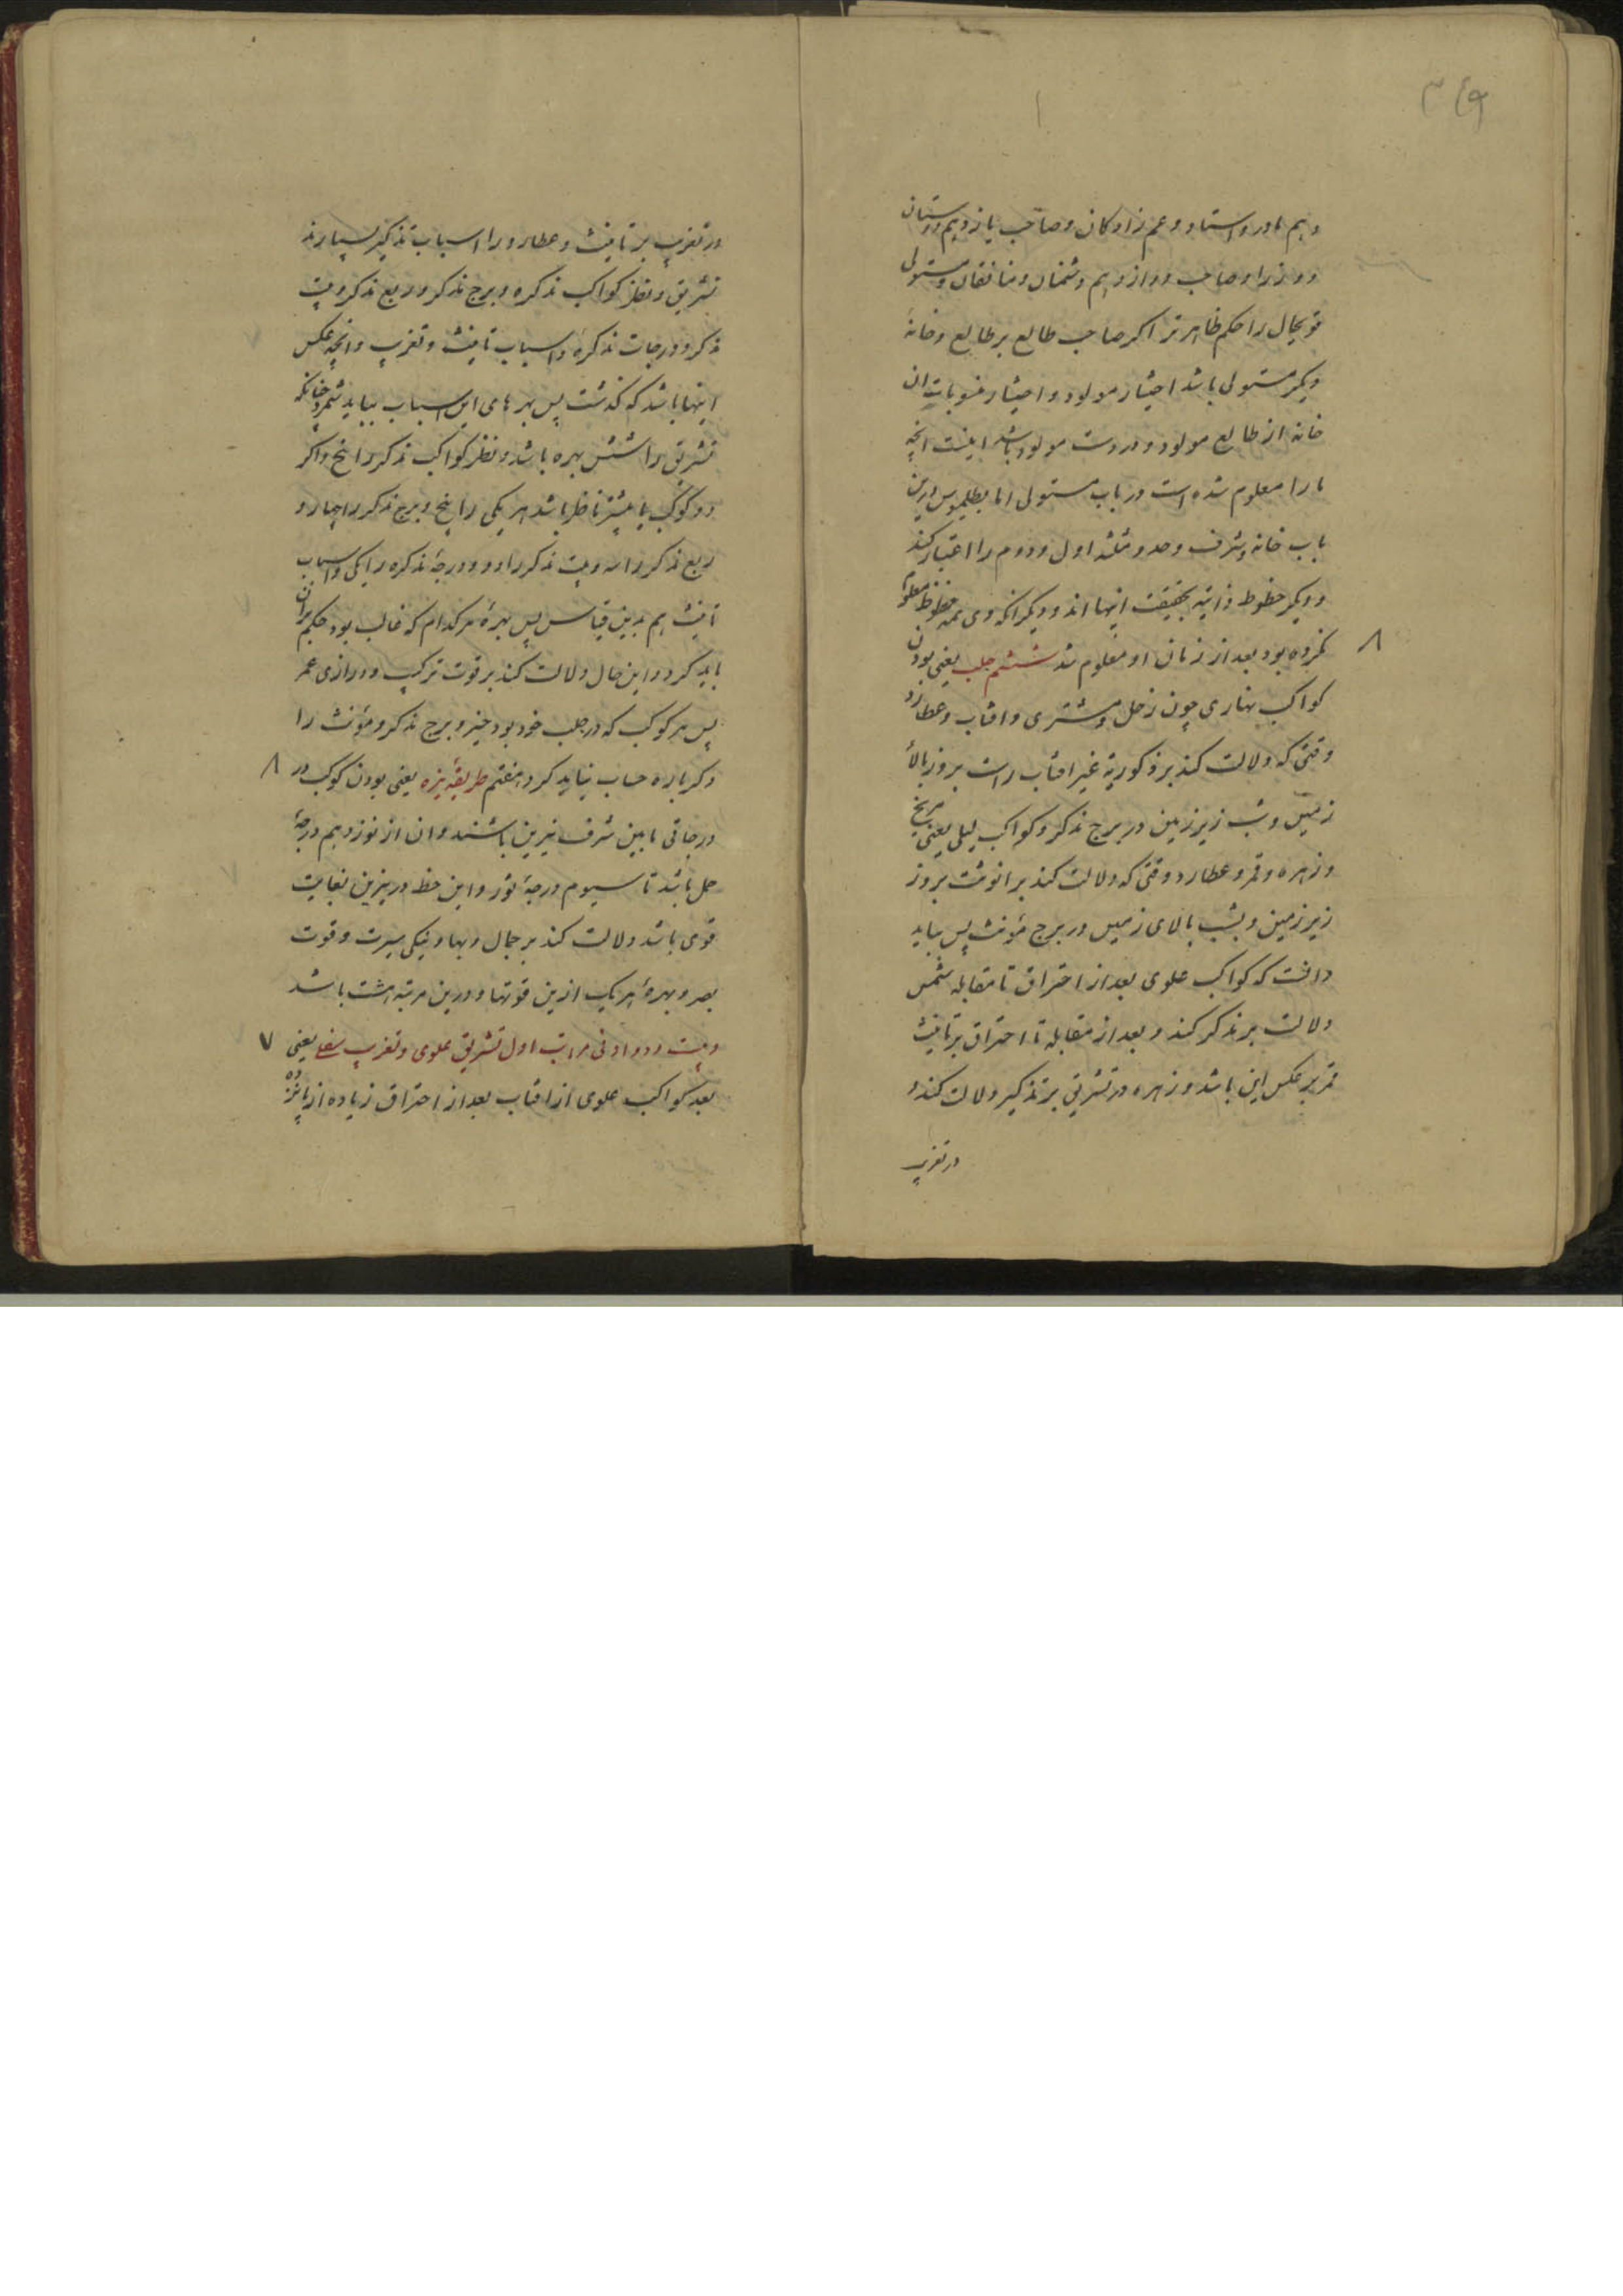 ۳۶۹
دهم مادر و استاد و عم زادکان و صاحب یازدهم دوستان
و وزرا و صاحب دوازدهم دشمنان و منافقان و مستولی
قویحال را حکم ظاهرتر اکر صاحب طالع بر طالع و خانهٔ
دیکر مستولی باشد اختیار مولود و اختیار منسوبات ان
خانه از طالع مولود و در دست مولود باشد اینست انچه
ما را معلوم شده است در باب مستولی اما بطلمیوس درین
باب خانه و شرف و حد و مثلثه اول و دوم را اعتبار کند
و دیکر حظوظ ذاتیه بحقیقت اینها اند و دیکر انکه وی همه حظوظ معلوم
نکرده بود بعد از زمان او معلوم شد ششم جلب یعنی بودن
۸
کواکب نهاری چون زحل و مشتری و افتاب و عطارد
وقتی که دلالت کند بر ذکوریة غیر افتاب راست بروز بالاء
زمین و شب زیر زمین در برج مذکر و کواکب لیلی یعنی مریخ
و زهره و قمر و عطارد وقتی که دلالت کند بر انوثت بروز
زیر زمین و بشب بالای زمین در برج مؤنث پس بباید
دانست که کواکب علوی بعد از احتراق تا مقابله شمس
دلالت بر تذکیر کند و بعد از مقابله تا احتراق بر تانیث
قمر بر عکس این باشد و زهره در تشریق بر تذکیر دلالت کند و
در تغریب
در تغریب بر تانیث و عطارد را اسباب تذکیر بسیارند
تشریق و نظر کواکب مذکره و برج مذکر و ربع مذکر و بیت
مذکر و درجات مذکره و اسباب تانیث و تغریب و انچه عکس
اینها باشد که کذشت پس بهرهای این اسباب بباید شمرد چنانکه
تشریق را شش بهره باشد و نظر کواکب مذکر را پنج و اکر
دو کوکب یا بیشتر ناظر باشد هر یکی را پنج و برج مذکر را چهار و
ربع مذکر را سه و بیت مذکر را دو و درجهٔ مذکره را یکی و اسباب
تانیث هم بدین قیاس پس بهرهٔ هر کدام که غالب بود حکم بران
باید کرد و این حال دلالت کند بر قوت ترکیب و درازی عمر
پس هر کوکب که در جلب خود بود حیز و برج مذکر و مؤنث را
دکر باره حساب نباید کرد هفتم طریقهٔ نیره یعنی بودن کوکب در
۸
درجاتی مابین شرف نیرین باشند و ان از نوزدهم درجهٔ
حمل باشد تا سیوم درجهٔ ثور و این حظ در نیرین بغایت
قوی باشد دلالت کند بر جمال و بها و نیکی سیرت و قوت
بصر و بهرهٔ هر یک ازین قوتها و درین مرتبه هشت باشد
و بیت و دو ادنی مراتب اول تشریق علوی و تغریب سفلی یعنی
۷
بعد کواکب علوی از افتاب بعد از احتراق زیاده از پانزده